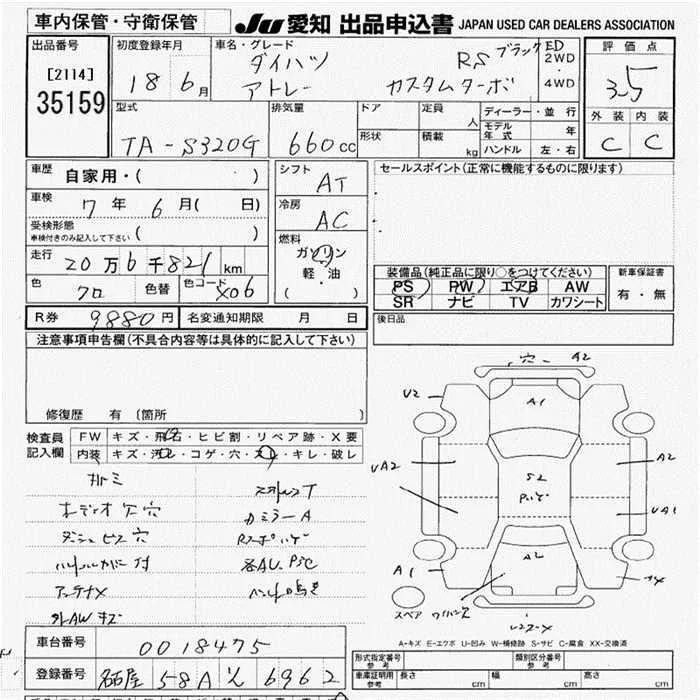 車内保管・守衛保管
JU 愛知 出品申込書 JAPAN USED CAR DEALERS ASSOCIATION
出品番号
[2114]
35159
初度登録年月
18 6月
車名・グレード
ダイハツ
アトレー
RS ブラック
カスタムターボ
ED
2WD
・
4WD
評価点
3.5
外装 内装
C C
型式
TA-S320G
排気量
660cc
ドア
形状
定員 人
積載 kg
ディーラー・並行
モデル年式 年
ハンドル 左・右
車歴 自家用・( )
車検 7年 6月( 日)
受検形態
車検付きのみ記入して下さい ( )
走行 20万6千821km
色 クロ 色替 色コード X06
シフト
AT
冷房
AC
燃料
ガソリン
軽・油
( )
セールスポイント(正常に機能するものに限ります)
装備品(純正品に限り○をつけてください)
PS PW エアB AW
SR ナビ TV カワシート
新車保証書
有・無
R券 9880円 名変通知期限 月 日
後日品
注意事項申告欄(不具合内容等は具体的に記入して下さい)
修復歴 有 (箇所 )
検査員
記入欄
FW キズ・飛石・ヒビ割・リペア跡・X要
内装 キズ・汚れ・コゲ・穴・スレ・キレ・破レ
オーディオ欠穴
ダッシュビス穴
カミラーA
アンテナX
外AWキズ
穴 A2
U2
A1
UA2
A2
S2
UA1
A2
A1
スペア
A-キズ E-エクボ U-凹み W-補修跡 S-サビ C-腐食 XX-交換済
車台番号 0018475
登録番号 名古屋 58A 6962
形式指定番号
参考
類別区分番号
参考
車庫証明用
参考
長さ cm 幅 cm 高さ cm